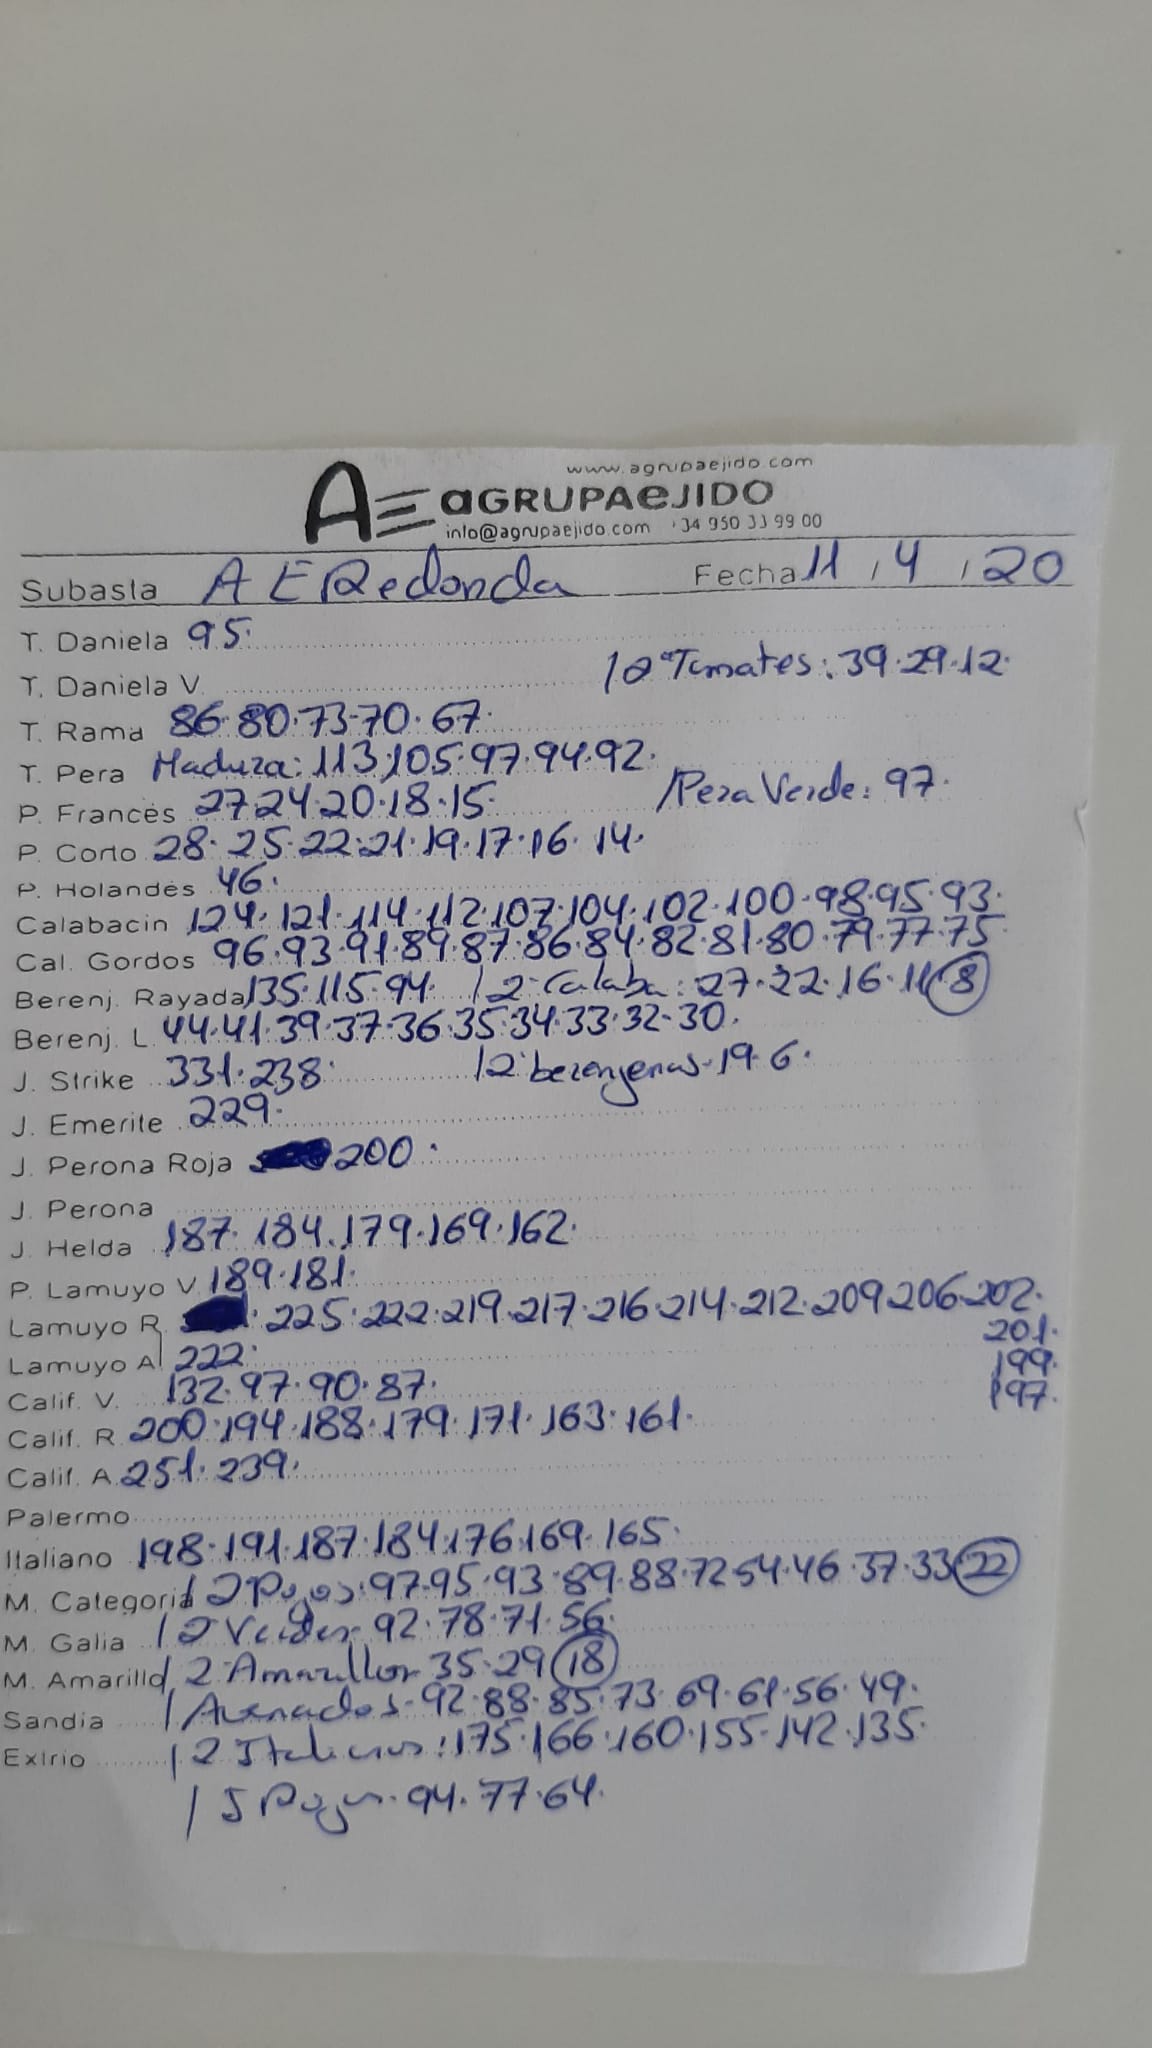 www.agrupaejido.com
AE aGRUPAeJIDO
info@agrupaejido.com +34 950 33 99 00
Subasta A E Redonda Fecha 11 / 4 / 20
T. Daniela 95.
T. Daniela V. / 2ª Tomates: 39.29.12.
T. Rama 86.80.73-70.67.
T. Pera Madura: 113.105.97.94.92.
P. Francés 27.24.20.18.15. /Pera Verde: 97.
P. Corto 28.25.22.21.19.17.16.14.
P. Holandés 46.
Calabacin 124.121.114.112.107.104.102.100.98.95.93.
Cal. Gordos 96.93.91.89.87.86.84.82.81.80.79.77.75
Berenj. Rayada 135.115.94. / 2-Calaba: 27.22.16.11 8
Berenj. L. 44.41.39.37.36.35.34.33.32.30.
J. Strike 331.238. / 2 berenjenas-19.6.
J. Emerite 229.
J. Perona Roja 200.
J. Perona
J. Helda 187.184.179.169.162.
P. Lamuyo V. 189.181.
Lamuyo R. 225.222.219.217.216.214.212.209.206.202.
201.
Lamuyo A 222.
199.
Calif. V. 132.97.90.87.
197.
Calif. R. 200.194.188.179.171.163.161.
Calif. A. 251.239.
Palermo
Italiano 198.191.187.184.176.169.165.
M. Categoria / 2 Rojos: 97.95.93.89.88.72 54.46.37.33 22
M. Galia / 2 Verdes- 92.78.71.56.
M. Amarillo / 2 Amarillos 35.29 18
Sandia / Asurados-92.88.85.73.69.61.56.49.
Exlrio / 2 Italianos: 175.166.160.155.142.135.
/ 94.77.64.